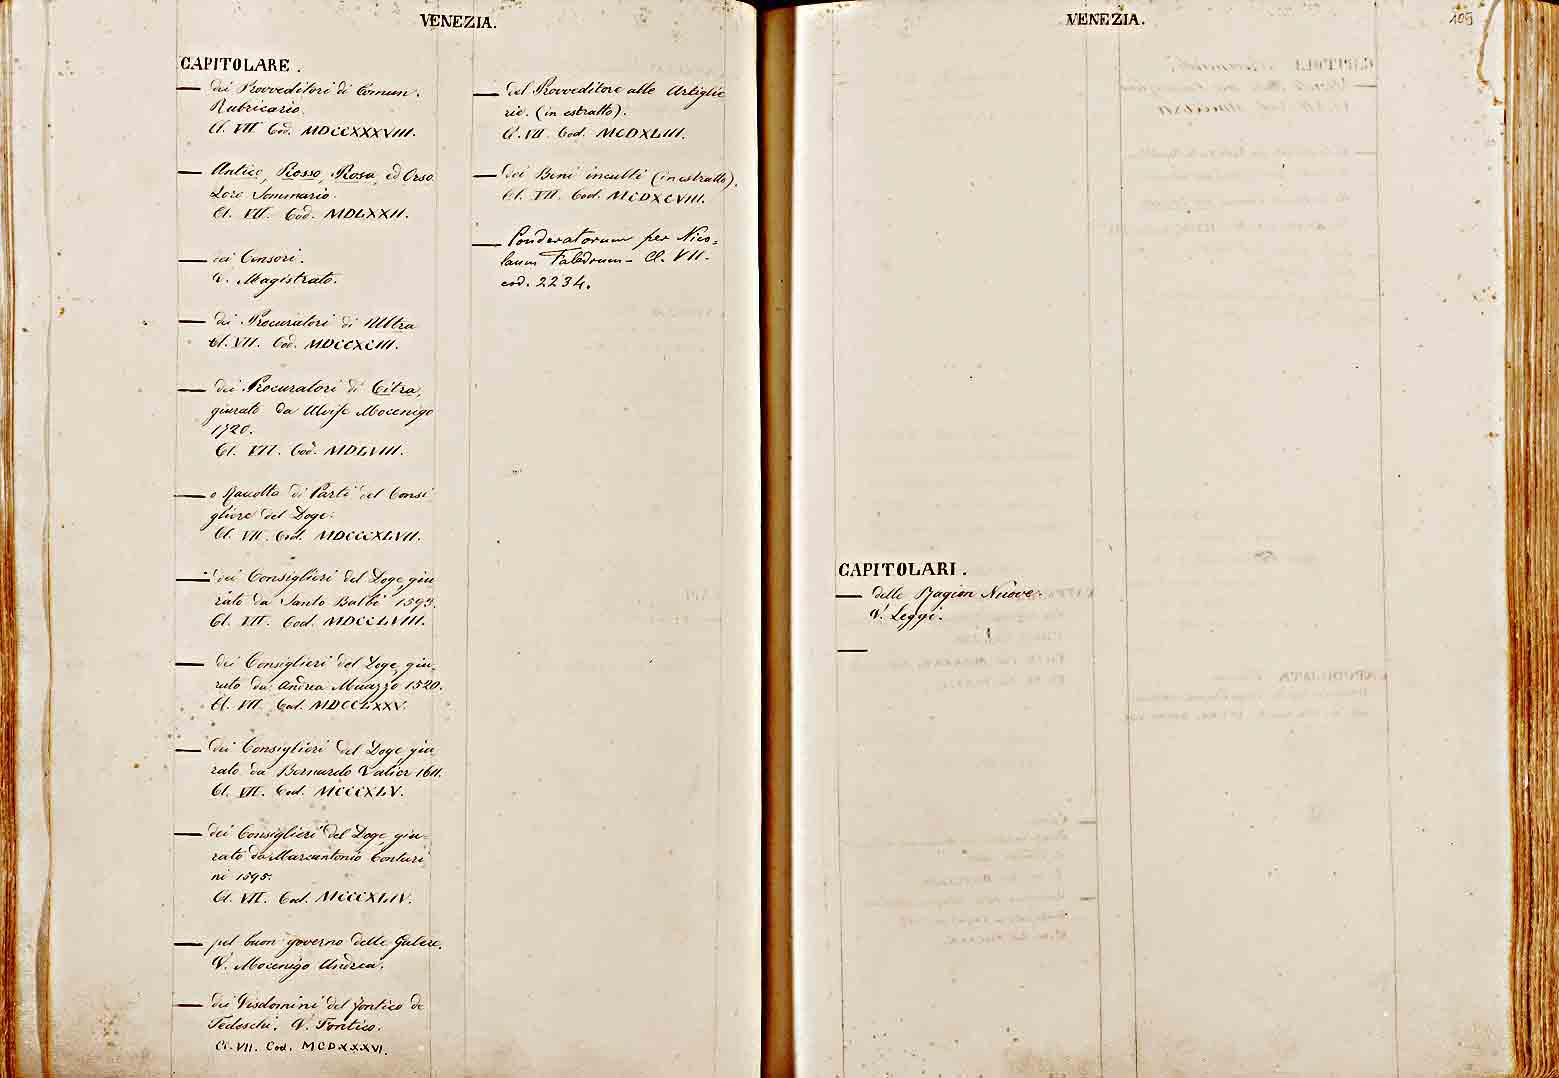 VENEZIA.
CAPITOLARE.
— dei Provveditori di Comun.
Rubricario.
Cl. VII Cod. MDCCXXXVIII.
— Antico, Rosso, Rosa, ed Orso.
Loro Sommario.
Cl. VII. Cod. MDLXXII.
— dei Censori.
V. Magistrato.
— dei Procuratori di Ultra
Cl. VII. Cod. MDCCXCIII.
— dei Procuratori di Citra,
giurato da Alvise Mocenigo
1720.
Cl. VII. Cod. MDLVIII.
— o Raccolta di Parti del Consi
gliere del Doge.
Cl. VII. Cod. MDCCCXLVII.
— dei Consiglieri del Doge, giu
rato da Santo Balbi 1593.
Cl. VII. Cod. MDCCLVIII.
— dei Consiglieri del Doge, giu-
rato da Andrea Muazzo 1520.
Cl. VII. Cod. MDCCLXXV.
— dei Consiglieri del Doge, giu
rato da Bernardo Valier 1611.
Cl. VII. Cod. MCCCXLV.
— dei Consiglieri del Doge, giu-
rato da Marcantonio Contari
ni 1595.
Cl. VII. Cod. MCCCXLIV.
— pel buon governo delle Galere.
V. Mocenigo Andrea.
— dei Visdomini del fontico de
Tedeschi. V. Fontico.
Cl. VII. Cod. MCDXXXVI.
— del Provveditore alle Artiglie
rie. (in estratto).
Cl. VII. Cod. MCDXLIII.
— dei Beni inculti (in estratto).
Cl. VII. Cod. MCDXCVIII.
— Ponderatorum per Nico=
laum Faledrum - Cl. VII.
cod. 2234.
VENEZIA.
109
CAPITOLARI.
— delle Ragion Nuove.
V. Leggi.
—